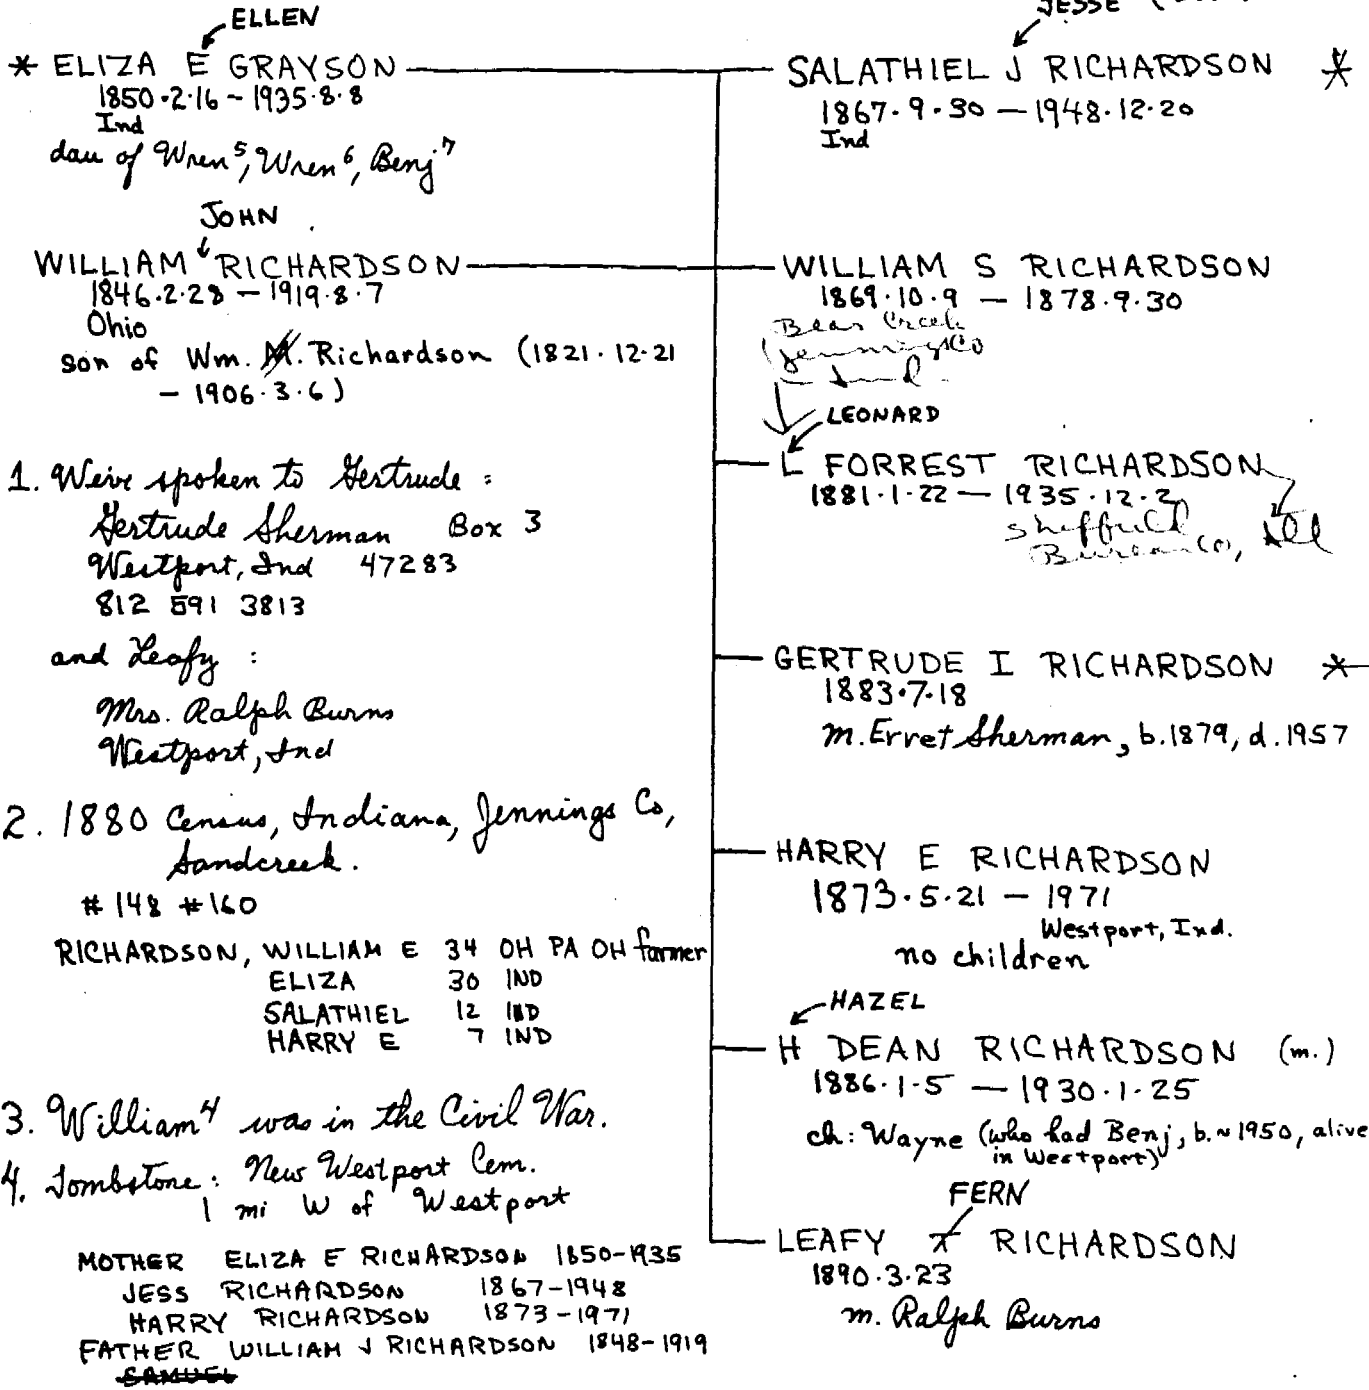 ELLEN
* ELIZA E GRAYSON
1850·2·16 ~ 1935·8·8
Ind
dau of Wren⁵, Wren⁶, Benj⁷
JOHN
WILLIAM RICHARDSON
1846·2·28 — 1919·8·7
Ohio
son of Wm. M. Richardson (1821·12·21
— 1906·3·6)
1. We've spoken to Gertrude:
Gertrude Sherman Box 3
Westport, Ind 47283
812 591 3813
and Leafy:
Mrs. Ralph Burns
Westport, Ind
2. 1880 Census, Indiana, Jennings Co,
Sandcreek.
#148 #160
RICHARDSON, WILLIAM E 34 OH PA OH farmer
ELIZA 30 IND
SALATHIEL 12 IND
HARRY E 7 IND
3. William⁴ was in the Civil War.
4. Tombstone: New Westport Cem.
1 mi W of Westport
MOTHER ELIZA E RICHARDSON 1850-1935
JESS RICHARDSON 1867-1948
HARRY RICHARDSON 1873-1971
FATHER WILLIAM J RICHARDSON 1848-1919
SAMUEL
JESSE
SALATHIEL J RICHARDSON *
1867·9·30 — 1948·12·20
Ind
WILLIAM S RICHARDSON
1869·10·9 — 1878·9·30
Bear Creek
Jennings Co
Ind
LEONARD
L FORREST RICHARDSON
1881·1·22 — 1935·12·2
Sheffield
Bureau Co, Ill
GERTRUDE I RICHARDSON *
1883·7·18
m. Erret Sherman, b.1879, d.1957
HARRY E RICHARDSON
1873·5·21 — 1971
Westport, Ind.
no children
HAZEL
H DEAN RICHARDSON (m.)
1886·1·5 — 1930·1·25
ch: Wayne (who had Benj, b.~1950, alive
in Westport)
FERN
LEAFY F RICHARDSON
1890·3·23
m. Ralph Burns